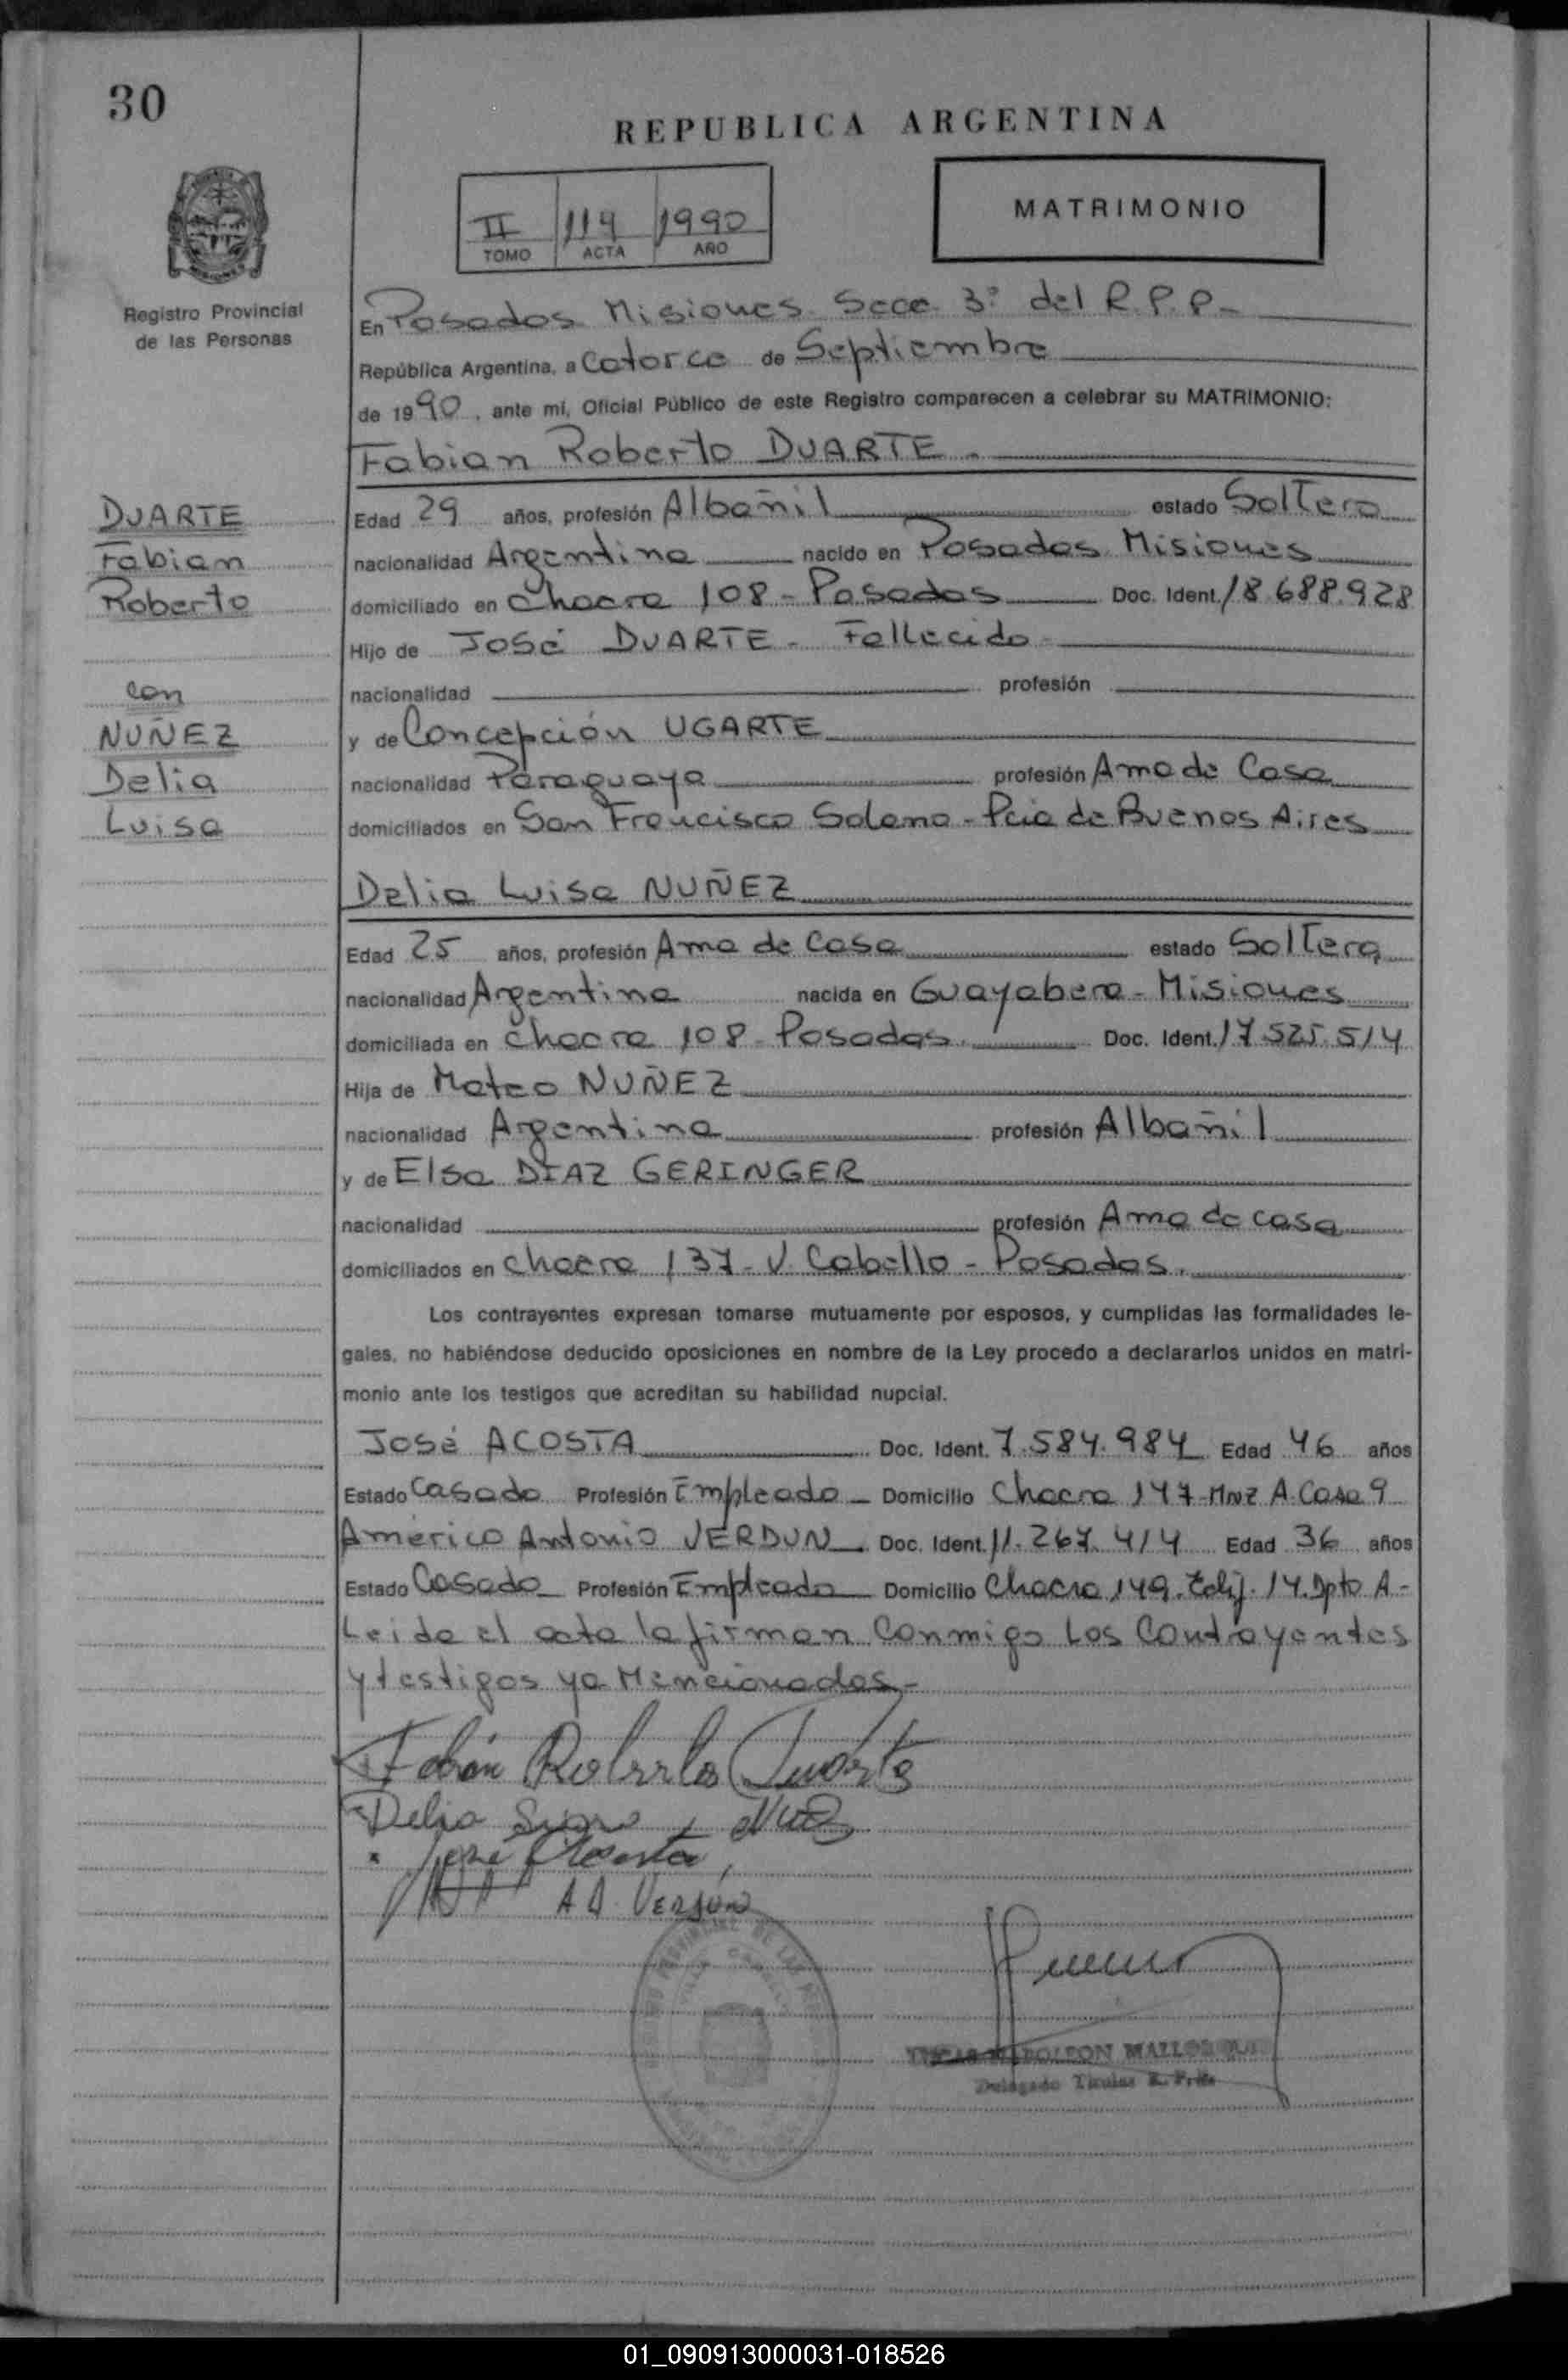 30
REPUBLICA ARGENTINA
II 119 1990
TOMO ACTA AÑO
MATRIMONIO
Registro Provincial
de las Personas
En Posadas Misiones Secc. 3º del R.P.P.-
República Argentina, a Catorce de Septiembre
de 1990, ante mí, Oficial Público de este Registro comparecen a celebrar su MATRIMONIO:
Fabian Roberto DUARTE.-
DUARTE
Fabian
Roberto
con
NUÑEZ
Delia
Luisa
Edad 29 años, profesión Albañil estado Soltero
nacionalidad Argentina nacido en Posadas Misiones
domiciliado en Chacra 108 - Posadas Doc. Ident. 18.688.928
Hijo de José DUARTE - Fallecido -
nacionalidad profesión
y de Concepción UGARTE
nacionalidad Paraguaya profesión Ama de Casa
domiciliados en San Francisco Solano - Pcia de Buenos Aires
Delia Luisa NUÑEZ
Edad 25 años, profesión Ama de Casa estado Soltera
nacionalidad Argentina nacida en Guayabera - Misiones
domiciliada en Chacra 108 - Posadas. Doc. Ident. 17.525.514
Hija de Mateo NUÑEZ
nacionalidad Argentina profesión Albañil
y de Elsa DIAZ GERINGER
nacionalidad profesión Ama de casa
domiciliados en Chacra 137 - V. Cabello - Posadas.
Los contrayentes expresan tomarse mutuamente por esposos, y cumplidas las formalidades le-
gales, no habiéndose deducido oposiciones en nombre de la Ley procedo a declararlos unidos en matri-
monio ante los testigos que acreditan su habilidad nupcial.
José ACOSTA Doc. Ident. 7.584.984 Edad 46 años
Estado Casado Profesión Empleado - Domicilio Chacra 147-Mnz A. Casa 9
Américo Antonio VERDUN Doc. Ident. 11.267.414 Edad 36 años
Estado Casado Profesión Empleado Domicilio Chacra 149. Edif. 14. Dpto A-
Leida el acta la firman Conmigo Los Contrayentes
y testigos ya Mencionados-
Fabián Roberto Duarte
Delia
José Acosta
A A. VERDÚN
NAPOLEON
Delegado Titular
01_090913000031-018526